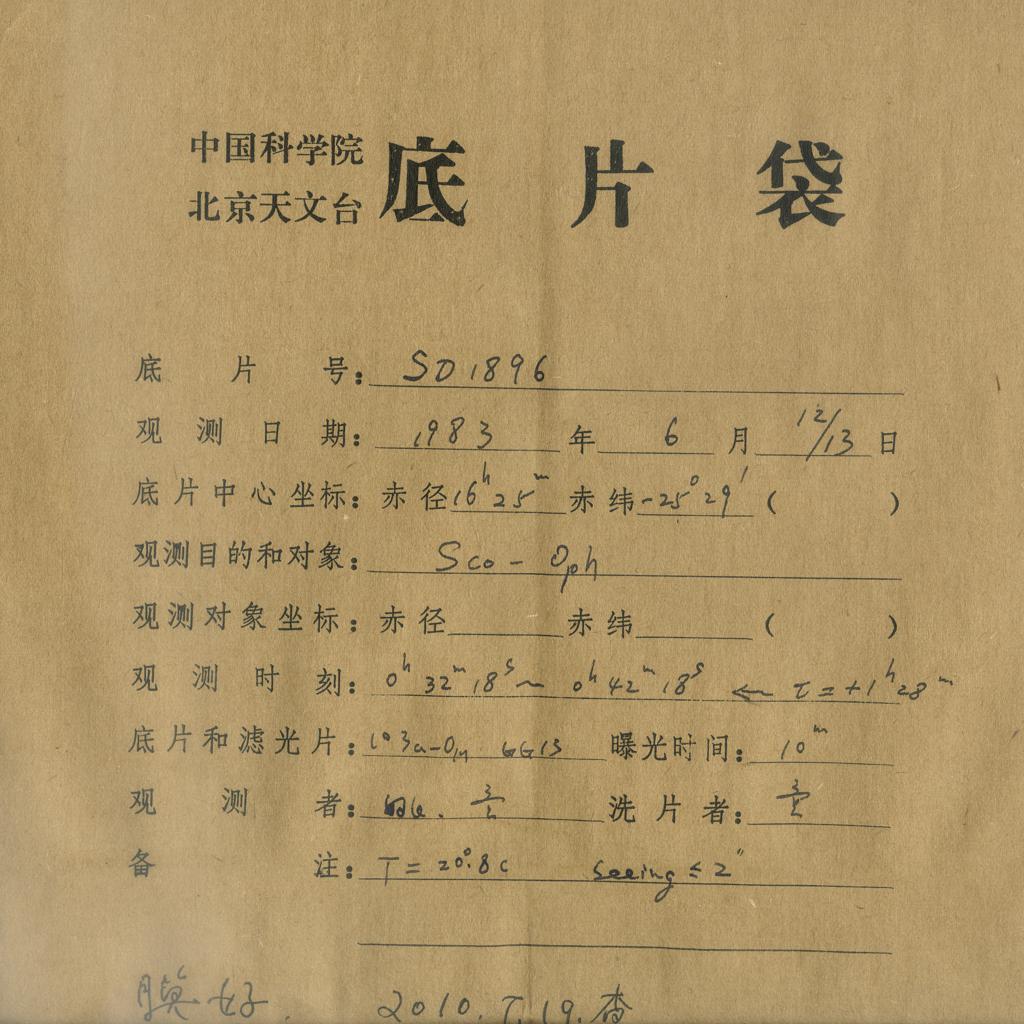 中国科学院
北京天文台
底片袋
底片号: SD1896
观测日期: 1983年6月12/13日
底片中心坐标: 赤径16h25m赤纬-25°29′( )
观测目的和对象: Sco - Oph
观测对象坐标: 赤径 赤纬 ( )
观测时刻: 0h32m18s~0h42m18s ← τ=+1h28m
底片和滤光片: 103a-On GG13 曝光时间: 10m
观测者: 洗片者:
备注: T=20°.8C seeing ≤ 2″
膜好. 2010. 7. 19. 查